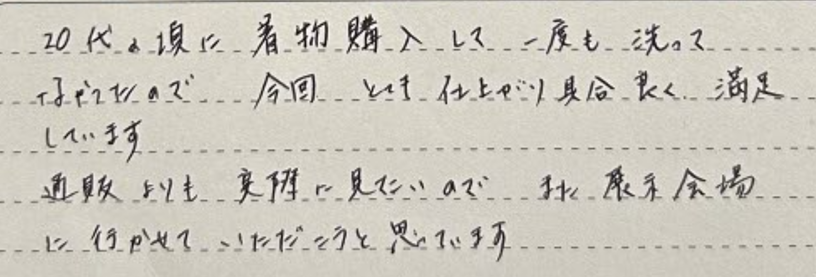 20代の頃に 着物購入して 一度も 洗って
なかったので 今回 とても 仕上がり具合良く 満足
しています
通販よりも 実際に見たいので また 展示会場
に行かせていただこうと思っています